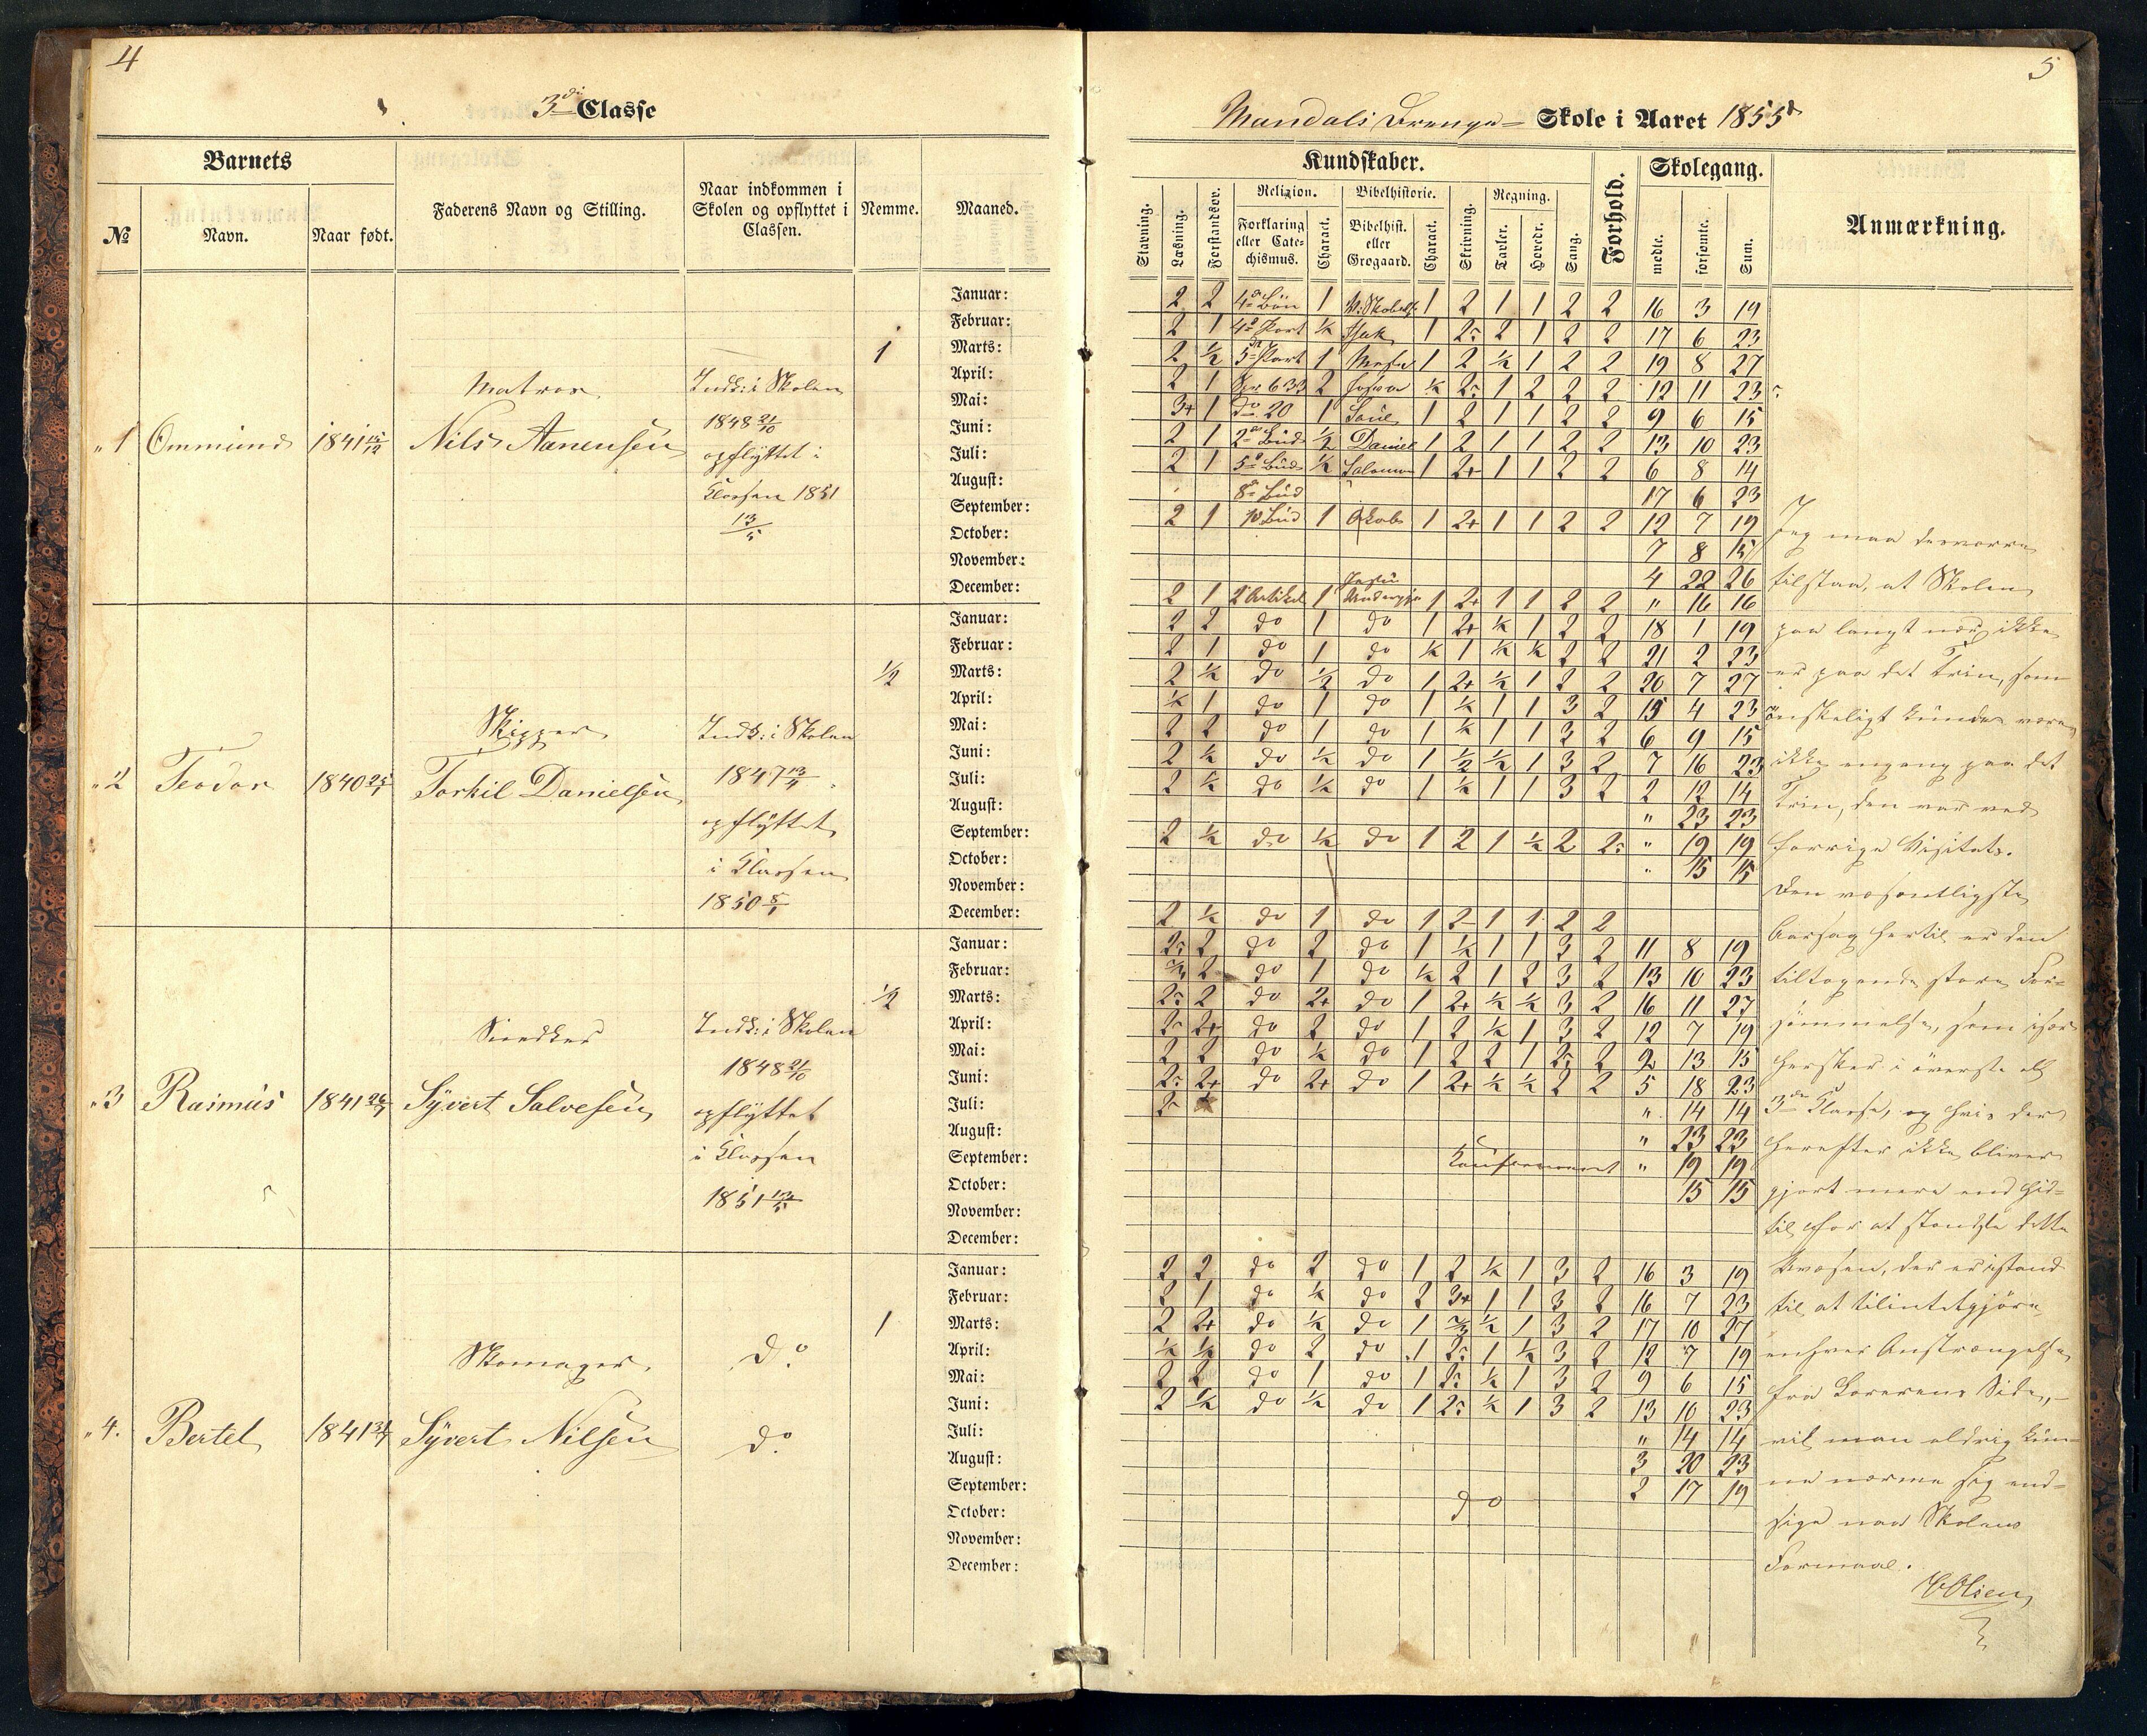 4
3die Classe
Barnets
№
Navn.
Naar født.
Faderens Navn og Stilling.
Naar indkommen i
Skolen og opflyttet i
Classen.
Nemme.
Maaned.
1
Januar:
Februar:
Marts:
April:
Mai:
Juni:
Juli:
August:
September:
October:
November:
December:
"1 Ommund 1841 15/12
Matros
Nils Aanensen
Indk: i Skolen
1848 21/10
opflyttet i
Classen 1851
13/5
1/2
Januar:
Februar:
Marts:
April:
Mai:
Juni:
Juli:
August:
September:
October:
November:
December:
"2 Teodor 1840
Skipper
Torkil Danielsen
Indk: i Skolen
1847
opflyttet
i Classen
1850
1/2
Januar:
Februar:
Marts:
April:
Mai:
Juni:
Juli:
August:
September:
October:
November:
December:
"3 Rasmus 1841
Snedker
Syvert Salvesen
Indk: i Skolen
1848 21/10
opflyttet
i Classen
1851 13/5
1
Januar:
Februar:
Marts:
April:
Mai:
Juni:
Juli:
August:
September:
October:
November:
December:
"4. Bertel 1841
Skomager
Syvert Nilsen
Do
Do
5
Mandals Drenge= Skole i Aaret 1855
Kundskaber.
Forhold.
Skolegang.
Anmærkning.
Stavning.
Læsning.
Forstandsøv.
Religion.
Forklaring
eller Cate-
chismus.
Charact.
Bibelhistorie.
Bibelhist.
eller
Grogaard.
Charact.
Skrivning.
Regning.
Tavler.
Hovedr.
Sang.
mødte.
forsømte.
Sum.
2 2 4de Bøn 1 1 2 1 1 2 2 16 3 19
2 1 4de Part 1/2 Isak 1 2 2 1 2 2 17 6 23
2 1/2 5te Part 1 Moses 1 2 1/2 1 2 2 19 8 27
2 1 2 Josva 1/2 2 1 2 2 2 12 11 23
3+ 1 do 20 1 Saul 1 2 1 1 2 2 9 6 15
2 1 2det Bud 1/2 Daniel 1 2 1 1 2 2 13 10 23
2 1 5te Bud 1/2 Salomon 1 2+ 1 1 2 2 6 8 14
8de Bud 17 6 23
2 1 10 Bud 1 Akab 1 2+ 1 1 2 2 12 7 19
7 8 15
4 22 26
2 1 2 Artikel 1 1 2+ 1 1 2 2 " 16 16
2 2 do 1 do 1 2+ 1/2 1 2 2 18 1 19
2 1 do 1 do 1/2 1 1/2 1/2 2 2 21 2 23
2 1/2 do 1/2 do 1 2+ 1/2 1 2 2 20 7 27
1/2 1 do 1 do 1 1/2 1 1 3 2 4 23
2 2 do 1 do 1 1/2 1 1 3 2 6 9 15
2 1/2 do 1/2 do 1 1/2 1/2 1 3 2 7 16 23
2 1/2 do 1/2 do 1 1/2 1 1 3 2 2 12 14
" 23 23
2 1/2 do 1/2 do 1 2 1 1/2 2 2 " 19 19
" 15 15
2 1/2 do 1 do 1 2 1 1 2 2
2 2 do 2 do 1 1/2 1 1 3 2 11 8 19
2 do 1 do 1/2 2 1 2 3 2 13 10 23
2 2 do 2+ do 1 2+ 1/2 1/2 3 2 16 11 27
2 2+ do 2 do 1 2 1/2 1 3 2 12 7 19
2 2 do 1/2 do 1 2 2 1 2 2 2 13 15
2 2+ do 2+ do 1 2+ 1/2 1/2 2 2 5 18 23
" 14 14
" 23 23
Konfirmeret " 19 19
15 15
2 2 do 2 do 1 2 1/2 1 3 2 16 3 19
2 1 do 1/2 do 2 3+ 1 1 3 2 16 7 23
2 2+ do 1/2 do 1 1/2 1 3 2 17 10 27
1/2 1/2 do 2 do 1 2 1 1/2 3 2 12 7 19
2 2 do 1 do 1 2 1/2 1 3 2 9 6 15
2 1/2 do 1/2 do 1 2 1/2 1 3 2 13 10 23
" 14 14
3 20 23
do 2 17 19
Jeg maa desværre
tilstaa, at Skolen
paa langt nær ikke
er paa det Trin, som
ønskeligt kunde være,
ikke engang paa det
Trin, den var ved
forrige Visitats.
Den væsentligste
Aarsag hertil er den
tiltagende store For=
sømmelse, som især
hersker i øverste ell
3die Classe, og hvis der
herefter ikke bliver
gjort mere end hid=
til for at standse dette
Uvæsen, der er istand
til at tilintetgjøre
enhver Anstrængelse
fra Lærerens Side,
vil man aldrig kun=
ne nærme sig end=
sige naa Skolens
Formaal.
Olsen